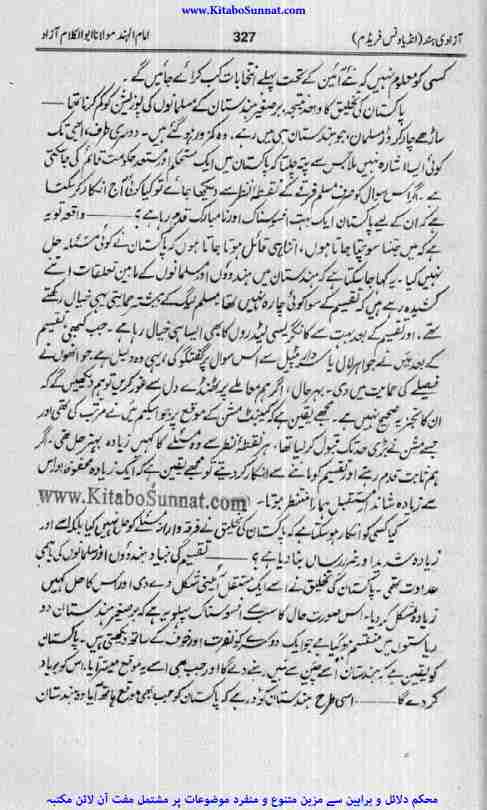 www.KitaboSunnat.com
آزادی ہند (انڈیا ونس فریڈم) 327 امام الہند مولانا ابوالکلام آزاد
کسی کو معلوم نہیں کہ نئے آئین کے تحت پہلے انتخابات کب کرائے جائیں گے۔
پاکستان کی تخلیق کا واحد نتیجہ برصغیر ہندستان کے مسلمانوں کی پوزیشن کو کم کرنا تھا —
ساڑھے چار کروڑ مسلمان، جو ہندستان ہی میں رہے۔ وہ کمزور ہو گئے ہیں۔ دوسری طرف، ابھی تک
کوئی ایسا اشارہ نہیں ملا جس سے پتہ چلتا کہ پاکستان میں ایک مستحکم اور مستعد حکومت قائم کی جا سکتی
ہے۔ اگر اس سوال کو صرف مسلم فرقے کے نقطۂ نظر سے دیکھا جائے تو کیا کوئی آج انکار کر سکتا
ہے کہ ان کے لیے پاکستان ایک بہت افسوسناک اور نامبارک قدم رہا ہے؟ —— واقعہ تو یہ
ہے کہ میں جتنا سوچتا جاتا ہوں، اتنا ہی قائل ہوتا جاتا ہوں کہ پاکستان نے کوئی مسئلہ حل
نہیں کیا۔ یہ کہا جا سکتا ہے کہ ہندستان میں ہندوؤں اور مسلمانوں کے مابین تعلقات اتنے
کشیدہ رہے ہیں کہ تقسیم کے سوا کوئی چارہ نہیں تھا۔ مسلم لیگ کے بیشتر حمایتی یہی خیال رکھتے
تھے، اور تقسیم کے بعد بہت سے کانگریسی لیڈروں کا بھی ایسا ہی خیال رہا ہے۔ جب کبھی تقسیم
کے بعد میں نے جواہر لال یا سردار پٹیل سے اس سوال پر گفتگو کی، یہی وہ دلیل ہے جو انھوں نے
فیصلے کی حمایت میں دی۔ بہر حال، اگر ہم معاملے پر ٹھنڈے دل سے غور کریں تو ہم دیکھیں گے کہ
ان کا تجزیہ صحیح نہیں ہے۔ مجھے یقین ہے کہ کیبنٹ مشن کے موقع پر جو اسکیم میں نے مرتب کی تھی اور
جسے مشن نے بڑی حد تک قبول کر لیا تھا، ہر نقطۂ نظر سے وہ مسئلے کا کہیں زیادہ بہتر حل تھی۔ اگر
ہم ثابت قدم رہتے اور تقسیم کو ماننے سے انکار کر دیتے تو مجھے یقین ہے کہ ایک زیادہ محفوظ اور اس
سے زیادہ شاندار مستقبل ہمارا منتظر ہوتا۔ www.KitaboSunnat.com
کیا کسی کو انکار ہو سکتا ہے کہ پاکستان کی تخلیق نے فرقہ وارانہ مسئلے کو حل نہیں کیا بلکہ اسے اور
زیادہ شدید اور ضرر رساں بنا دیا ہے؟ —— تقسیم کی بنیاد ہندوؤں اور مسلمانوں کی باہمی
عداوت تھی۔ پاکستان کی تخلیق نے اسے ایک مستقل آئینی شکل دے دی اور اس کا حل کہیں
زیادہ مشکل کر دیا۔ اس صورت حال کا سب سے افسوسناک پہلو یہ ہے کہ برصغیر ہندستان دو
ریاستوں میں منقسم ہو گیا ہے جو ایک دوسرے کو نفرت اور خوف کے ساتھ دیکھتی ہیں۔ پاکستان
کو یقین ہے کہ ہندستان اسے چین سے نہیں رہنے دے گا اور جب بھی اسے یہ موقع میسر آیا، اس کو برباد
کر دے گا —— اسی طرح ہندستان کو ڈر ہے کہ پاکستان کو جب بھی موقع ہاتھ آیا وہ ہندستان
محکم دلائل و براہین سے مزین متنوع و منفرد موضوعات پر مشتمل مفت آن لائن مکتبہ